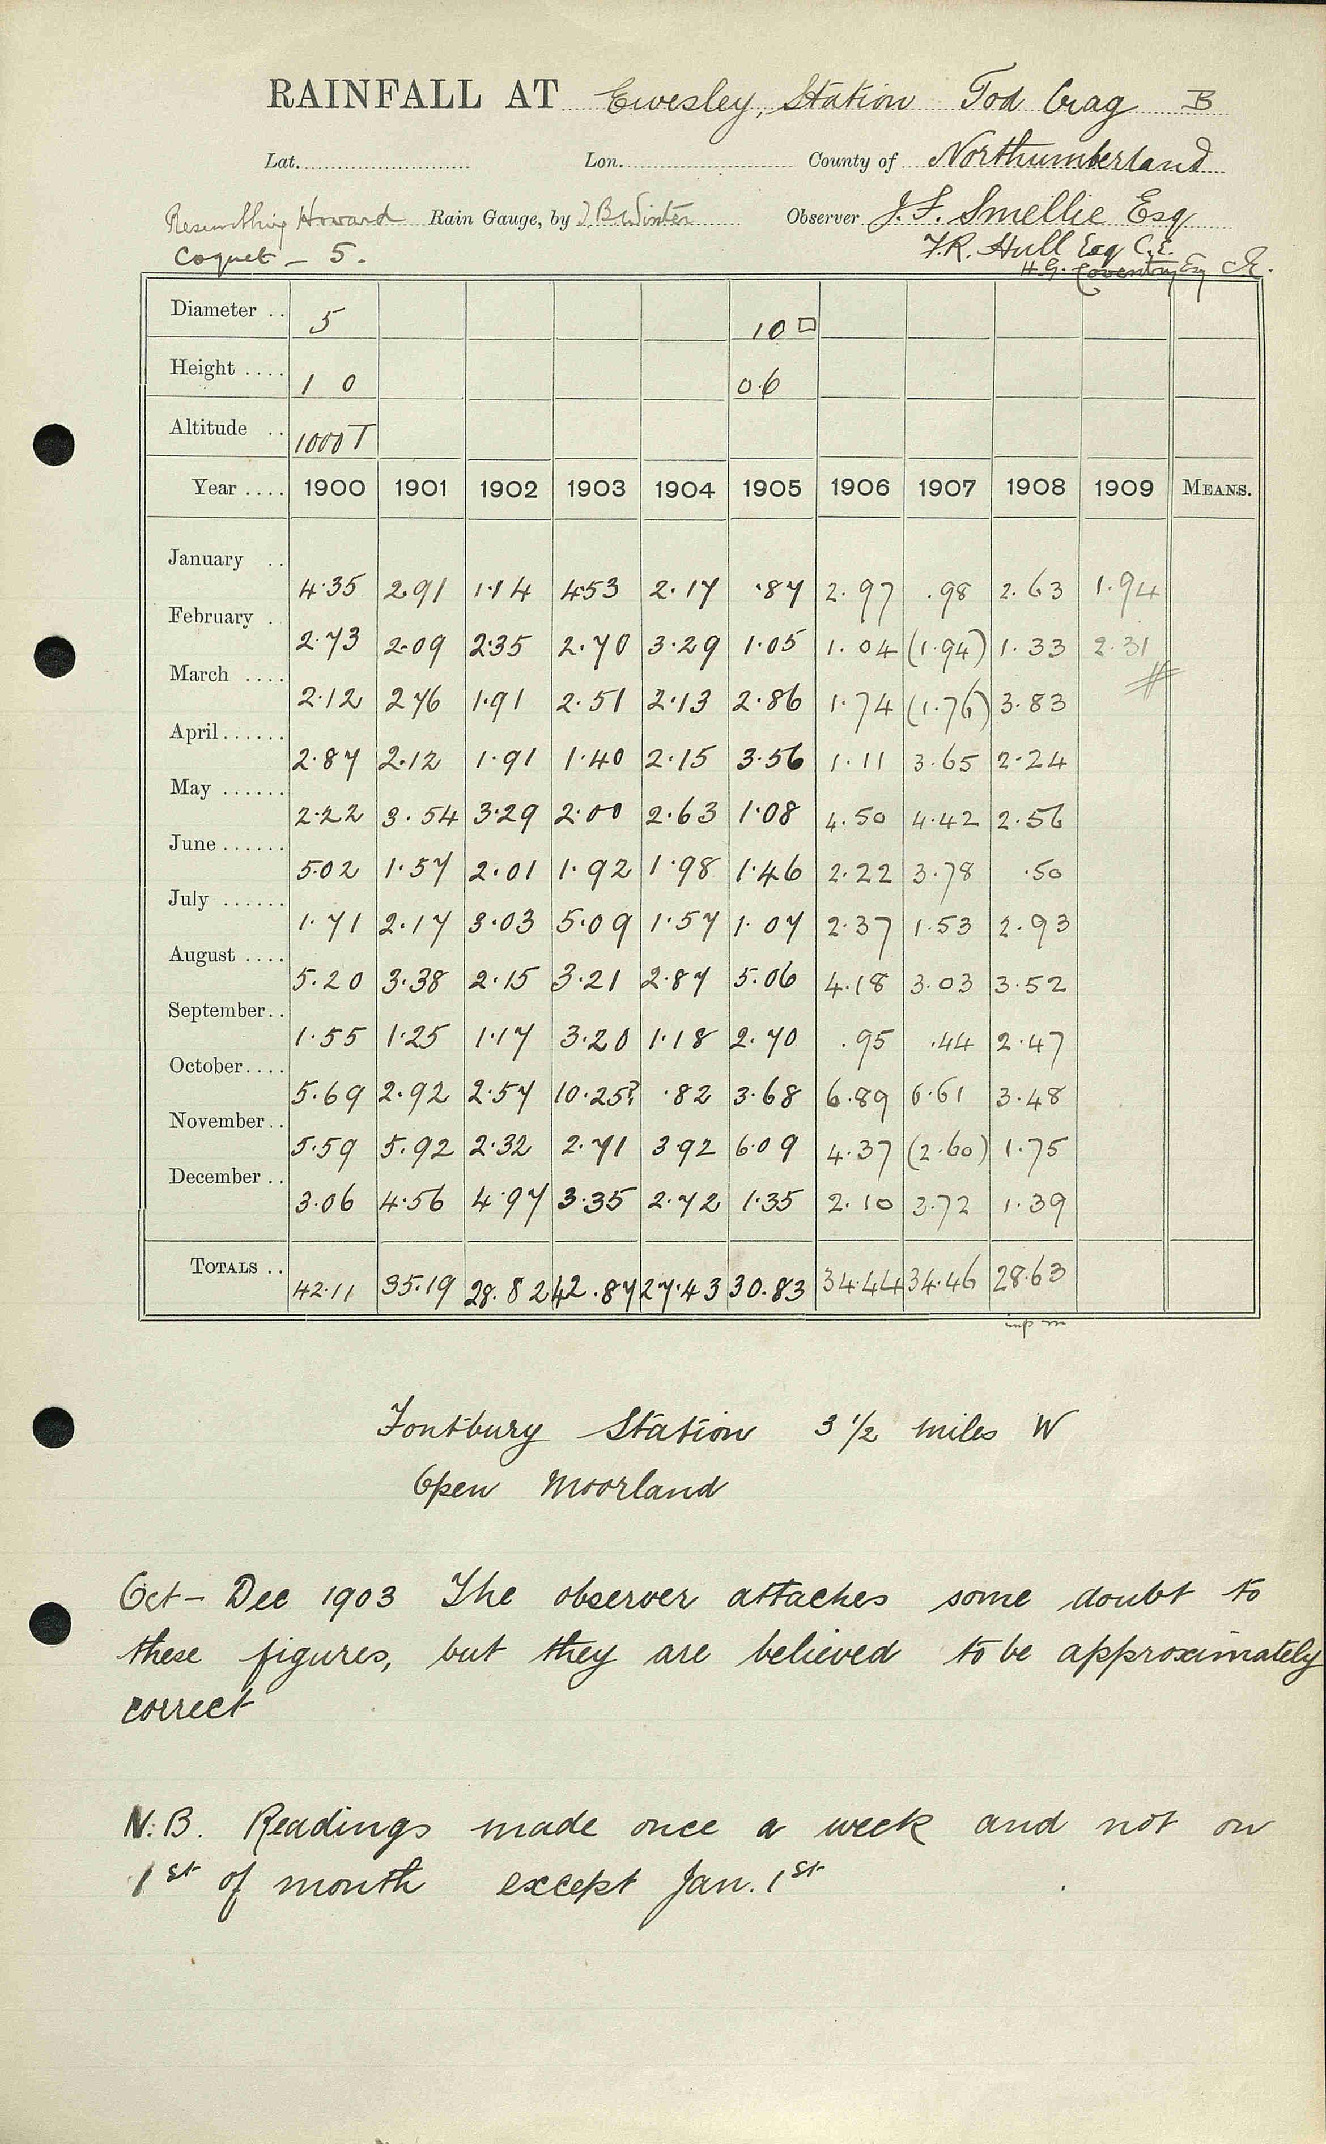 RAINFALL AT Ewesley, Station Tod Crag B
Lat. Lon. County of Northumberland
Resembling Howard Rain Gauge, by J.B. Winter Observer J. F. Smellie Esq
Coquet - 5. F.R. Hull Esq C.E.
H. G. Coventry Esq C.E.
Diameter .. 5 10 □
Height .... 1 0 0.6
Altitude .. 1000 T
Year .... 1900 1901 1902 1903 1904 1905 1906 1907 1908 1909 MEANS.
January .. 4.35 2.91 1.14 4.53 2.17 .87 2.97 .98 2.63 1.94
February . 2.73 2.09 2.35 2.70 3.29 1.05 1.04 (1.94) 1.33 2.31
March .... 2.12 2.76 1.91 2.51 2.13 2.86 1.74 (1.76) 3.83
April...... 2.87 2.12 1.91 1.40 2.15 3.56 1.11 3.65 2.24
May ...... 2.22 3.54 3.29 2.00 2.63 1.08 4.50 4.42 2.56
June ...... 5.02 1.57 2.01 1.92 1.98 1.46 2.22 3.78 .50
July ...... 1.71 2.17 3.03 5.09 1.57 1.07 2.37 1.53 2.93
August .... 5.20 3.38 2.15 3.21 2.87 5.06 4.18 3.03 3.52
September.. 1.55 1.25 1.17 3.20 1.18 2.70 .95 .44 2.47
October.... 5.69 2.92 2.57 10.25? .82 3.68 6.89 6.61 3.48
November.. 5.59 5.92 2.32 2.71 3.92 6.09 4.37 (2.60) 1.75
December .. 3.06 4.56 4.97 3.35 2.72 1.35 2.10 3.72 1.39
TOTALS .. 42.11 35.19 28.82 42.87 27.43 30.83 34.44 34.46 28.63
Fontbury Station 3 1/2 miles W
Open Moorland
Oct - Dec 1903 The observer attaches some doubt to
these figures, but they are believed to be approximately
correct
N.B. Readings made once a week and not on
1st of month except Jan. 1st